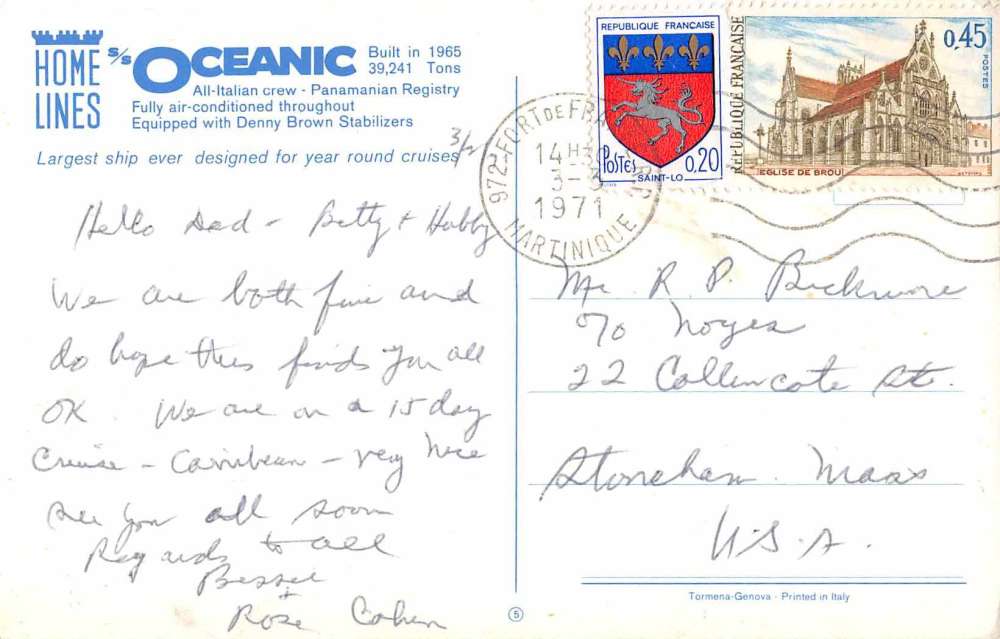 HOME
LINES
s/s OCEANIC
Built in 1965
39,241 Tons
All-Italian crew - Panamanian Registry
Fully air-conditioned throughout
Equipped with Denny Brown Stabilizers
Largest ship ever designed for year round cruises
3/2
Hello Dad - Betty + Hubby
We are both fine and
do hope this finds you all
OK. We are on a 15 day
Cruise - Carribean - very nice
see you all soon
Regards to all
Bessie
Rose Cohen
REPUBLIQUE FRANÇAISE
Postes
0,20
SAINT-LO
REPUBLIQUE FRANÇAISE
0,45
POSTES
EGLISE DE BROU
972-FORT DE FRANCE
14H30
3-3
1971
MARTINIQUE
Mr. R. P. Bickmore
c/o Noyes
22 Collincote St.
Stoneham Mass
U.S.A.
Tormena-Genova - Printed in Italy
5